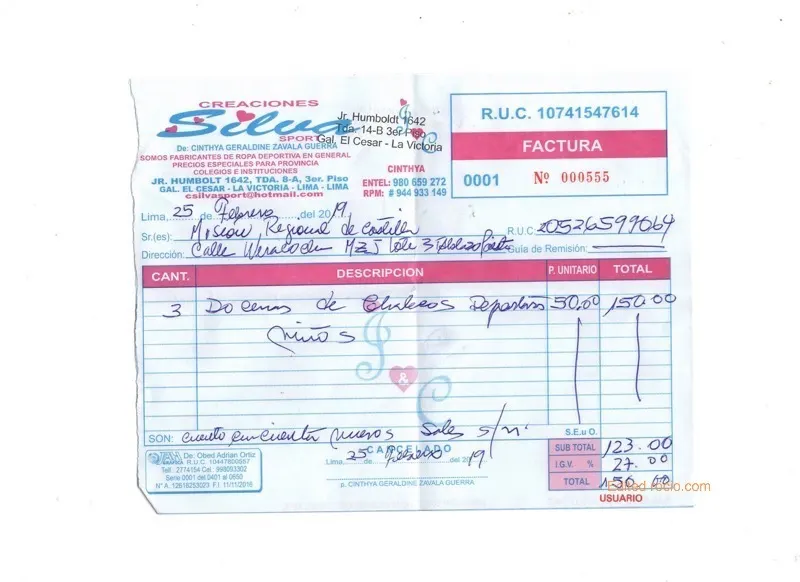 CREACIONES
Silva
SPORT
Jr. Humboldt 1642
Tda. 14-B 3er Piso
Gal. El Cesar - La Victoria
De: CINTHYA GERALDINE ZAVALA GUERRA
SOMOS FABRICANTES DE ROPA DEPORTIVA EN GENERAL
PRECIOS ESPECIALES PARA PROVINCIA
COLEGIOS E INSTITUCIONES
JR. HUMBOLT 1642, TDA. 8-A, 3er. Piso
GAL. EL CESAR - LA VICTORIA - LIMA - LIMA
csilvasport@hotmail.com
CINTHYA
ENTEL: 980 659 272
RPM: # 944 933 149
R.U.C. 10741547614
FACTURA
0001 Nº 000555
Lima, 25 de Febrero del 2019
Sr.(es): Mision Regional de Castilla R.U.C. 20526599064
Dirección: Calle Wiracocha Mz J Lote 3 Guía de Remisión:
CANT. DESCRIPCION P. UNITARIO TOTAL
3 Docenas de Chalecos Deportivos 50.00 150.00
Niños
J & C
SON: ciento cincuenta nuevos Soles s/n.
S.E.u O.
CANCELADO
Lima, 25 Febrero del 2019
p. CINTHYA GERALDINE ZAVALA GUERRA
De: Obed Adrian Ortiz
Telf.: 2774154 Cel.: 998093302
Serie 0001 del 0401 al 0650
F.I. 11/11/2016
SUB TOTAL 123.00
I.G.V. % 27.00
TOTAL 150.00
USUARIO
Edited rocio.com